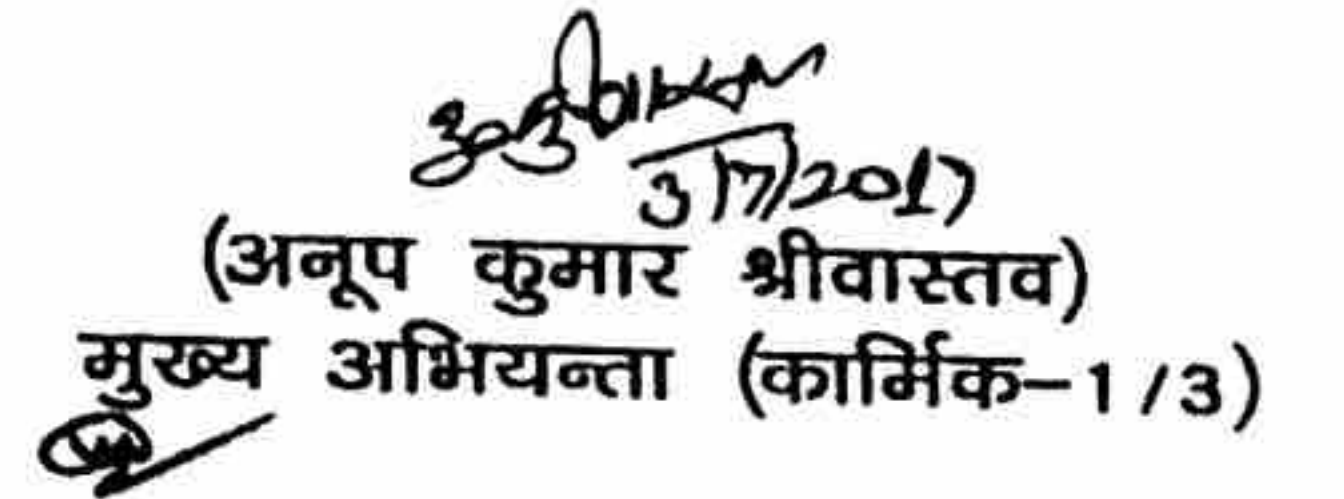 3/7/2017
(अनूप कुमार श्रीवास्तव)
मुख्य अभियन्ता (कार्मिक-1/3)